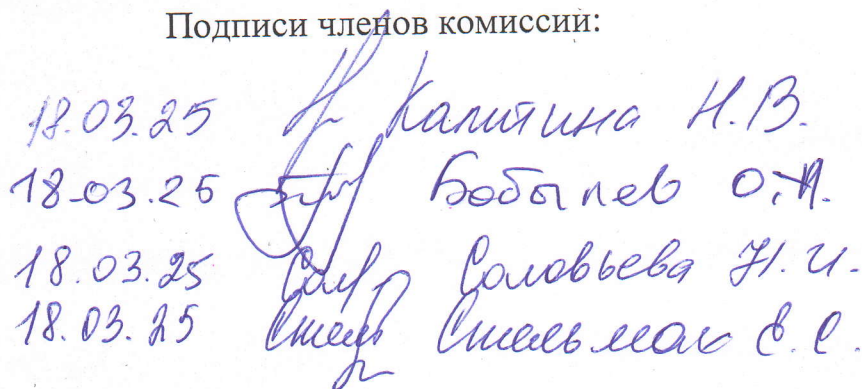 Подписи членов комиссии:
18.03.25 Калитина Н.В.
18.03.25 Бобылев О.
18.03.25 Соловьева Н.И.
18.03.25 Стельмак Е.С.